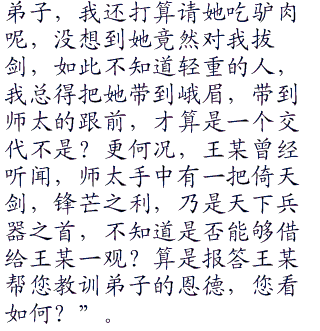 弟子，我还打算请她吃驴肉
呢，没想到她竟然对我拔
剑，如此不知道轻重的人，
我总得把她带到峨眉，带到
师太的跟前，才算是一个交
代不是？更何况，王某曾经
听闻，师太手中有一把倚天
剑，锋芒之利，乃是天下兵
器之首，不知道是否能够借
给王某一观？算是报答王某
帮您教训弟子的恩德，您看
如何？”。